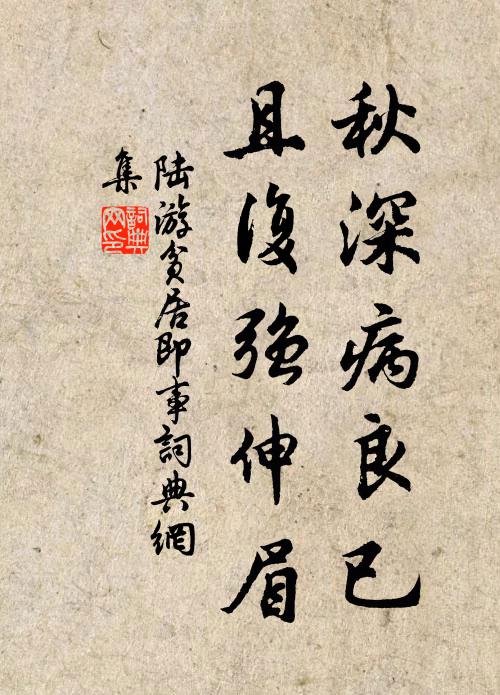 秋深病良已
且復強伸眉
陸游貧居即事詞典網
集
詞典
网印